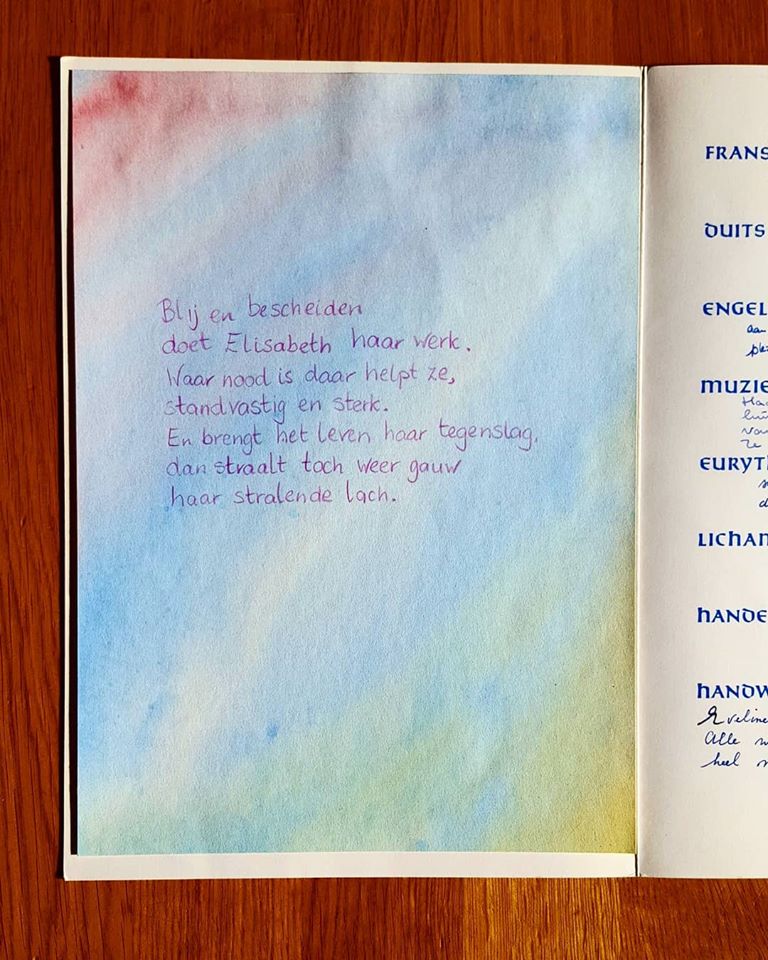 Blij en bescheiden
doet Elisabeth haar werk.
Waar nood is daar helpt ze,
standvastig en sterk.
En brengt het leven haar tegenslag,
dan straalt toch weer gauw
haar stralende lach.
FRANS
DUITS
ENGEL
aan
MUZIE
ze
EURYT
LICHAM
HANDE
HANDW
Eveline
Alle
heel